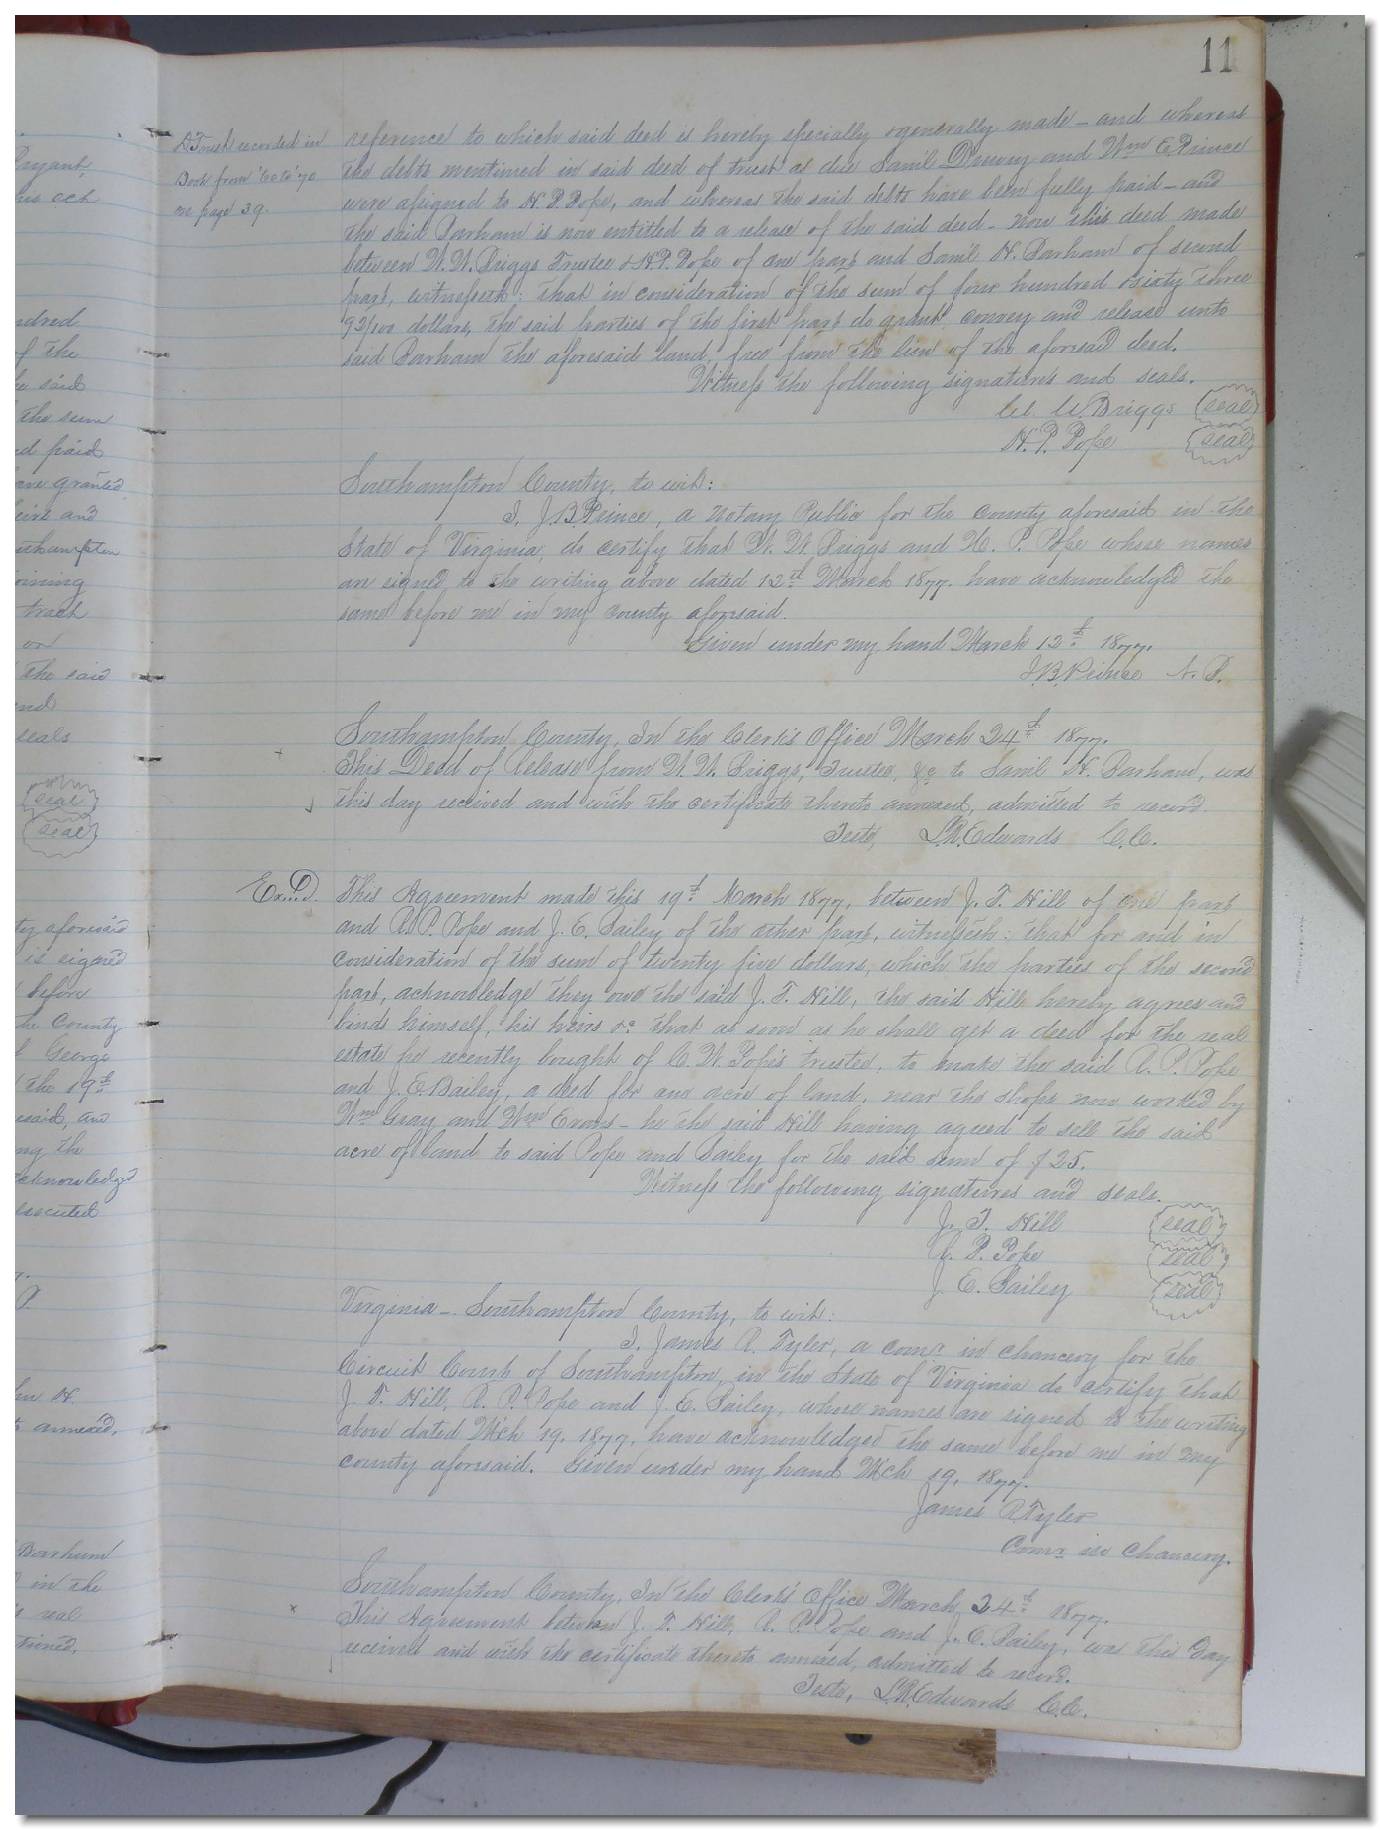 11
D Trust recorded in
Book from '60 to '70
on page 39.
reference to which said deed is hereby specially & generally made - and whereas
the debts mentioned in said deed of trust as due Saml Drewry and Wm E. Prince
were assigned to H. P. Pope, and whereas the said debts have been fully paid - and
the said Barham is now entitled to a release of the said deed - now this deed made
between W. W. Briggs Trustee & H. P. Pope of one part and Saml H. Barham of second
part, witnesseth: that in consideration of the sum of four hundred & sixty three
92/100 dollars, the said parties of the first part do grant convey and release unto
said Barham the aforesaid land, free from the lien of the aforesaid deed.
Witness the following signatures and seals.
W. W. Briggs (seal)
H. P. Pope (seal)
Southampton County, to wit:
I, J. B. Prince, a Notary Public for the County aforesaid in the
State of Virginia, do certify that W. W. Briggs and H. P. Pope whose names
are signed to the writing above dated 12th March 1877. have acknowledged the
same before me in my County aforesaid.
Given under my hand March 12th 1877.
J. B. Prince N. P.
Southampton County, In the Clerk's Office March 24th 1877.
This Deed of Release from W. W. Briggs, Trustee, &c to Saml H. Barham, was
this day received and with the certificate thereto annexed, admitted to record.
Teste, L. R. Edwards C. C.
Ex. D. This Agreement made this 19th March 1877, between J. T. Hill of one part
and R. P. Pope and J. E. Bailey of the other part, witnesseth: that for and in
consideration of the sum of twenty five dollars, which the parties of the second
part, acknowledge they owe the said J. T. Hill, the said Hill hereby agrees and
binds himself, his heirs &c that as soon as he shall get a deed for the real
estate he recently bought of C. W. Pope's trustee, to make the said R. P. Pope
and J. E. Bailey, a deed for one acre of land, near the shops now worked by
Wm Gray and Wm Evans - he the said Hill having agreed to sell the said
acre of land to said Pope and Bailey for the said sum of $25.
Witness the following signatures and seals.
J. T. Hill (seal)
R. P. Pope (seal)
J. E. Bailey (seal)
Virginia - Southampton County, to wit:
I, James R. Tyler, a comr. in chancery for the
Circuit Court of Southampton, in the State of Virginia do certify that
J. T. Hill, R. P. Pope and J. E. Bailey, whose names are signed to the writing
above dated Mch 19. 1877, have acknowledged the same before me in my
county aforesaid. Given under my hand Mch 19, 1877.
James R. Tyler
Comr. in Chancery.
Southampton County, In the Clerk's Office March 24th 1877.
This Agreement between J. T. Hill, R. P. Pope and J. E. Bailey, was this day
received and with the certificate thereto annexed, admitted to record.
Teste, L. R. Edwards C. C.